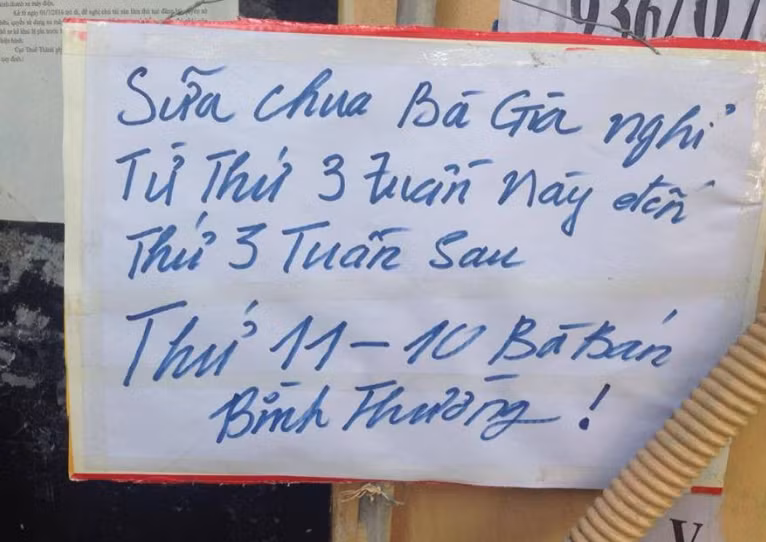 936/0
Sữa chua Bà Già nghỉ
Từ Thứ 3 tuần này đến
Thứ 3 Tuần Sau
Thứ 11-10 Bà Bán
Bình Thường!
V